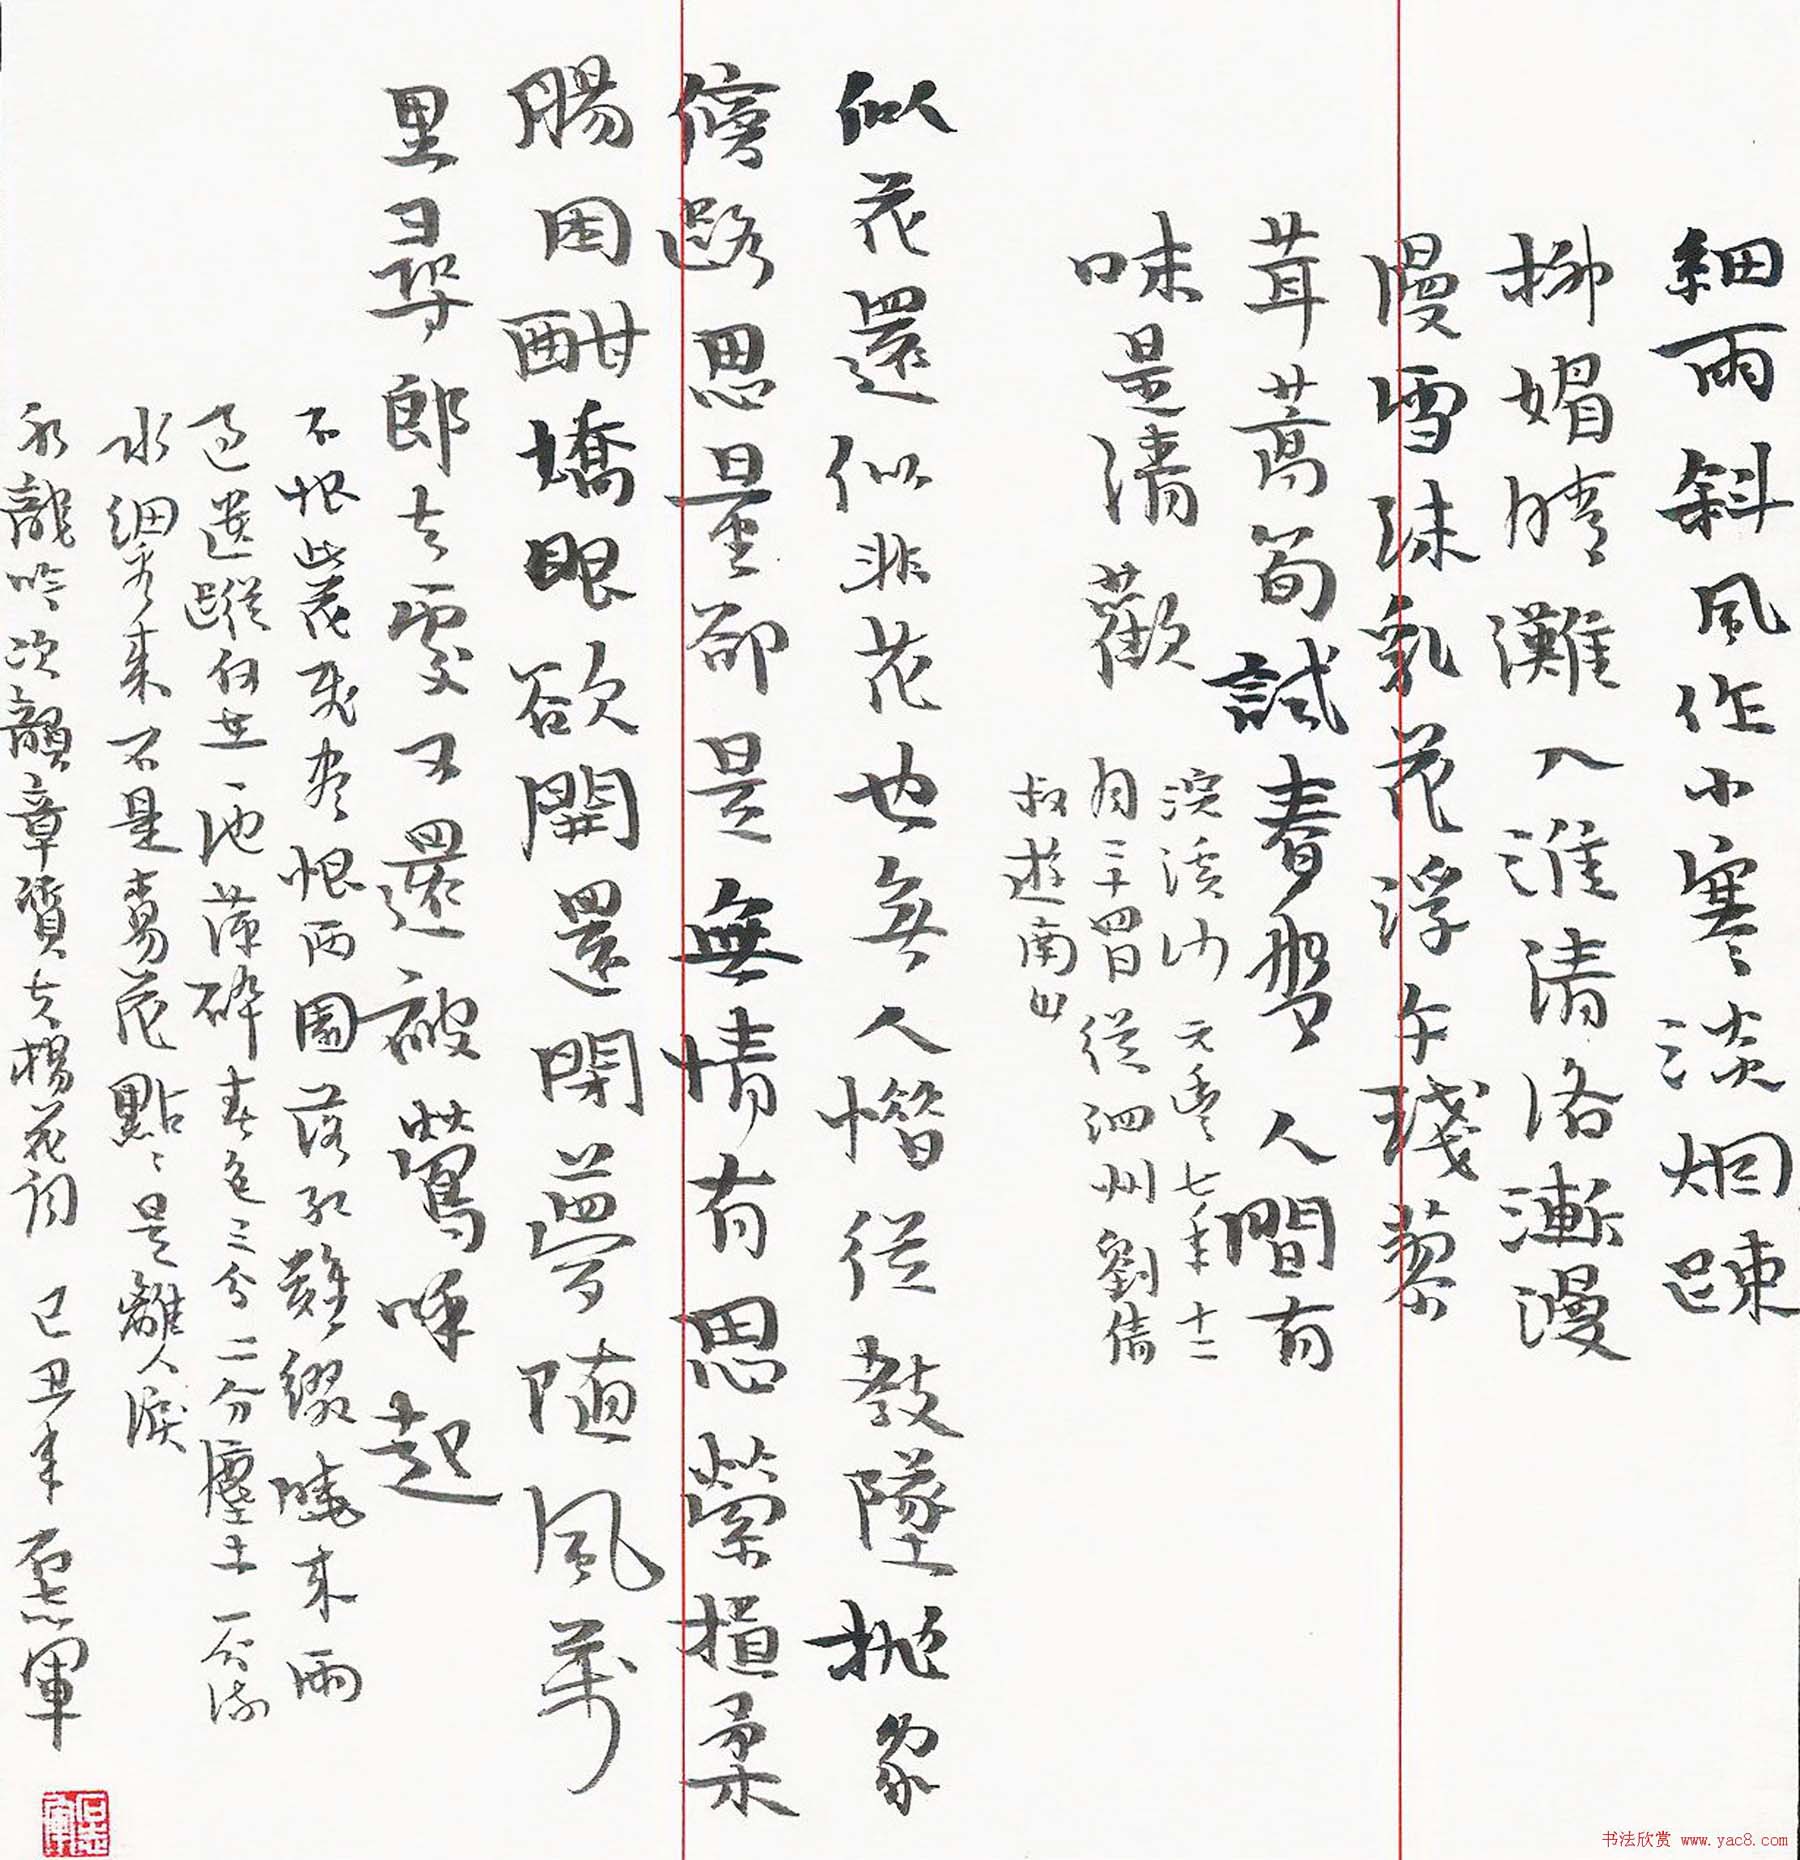 細雨斜風作小寒淡烟疎
柳媚晴灘入淮清洛漸漫
漫雪沫乳花浮午琖蓼
茸蒿筍試春盤人間有
味是清歡
浣溪沙 元豐七年十二
月二十四日從泗州劉倩
叔遊南山
似花還似非花也無人惜從教墜抛家
傍路思量卻是無情有思縈損柔
腸困酣嬌眼欲開還閉夢隨風萬
里尋郎去處又還被鶯呼起
不恨此花飛盡恨西園落紅難綴曉來雨
過遺蹤何在一池萍碎春色三分二分塵土一分流
水細看來不是楊花點點是離人淚
水龍吟次韻章質夫楊花詞 己丑年 石志軍
书法欣赏 www.yac8.com